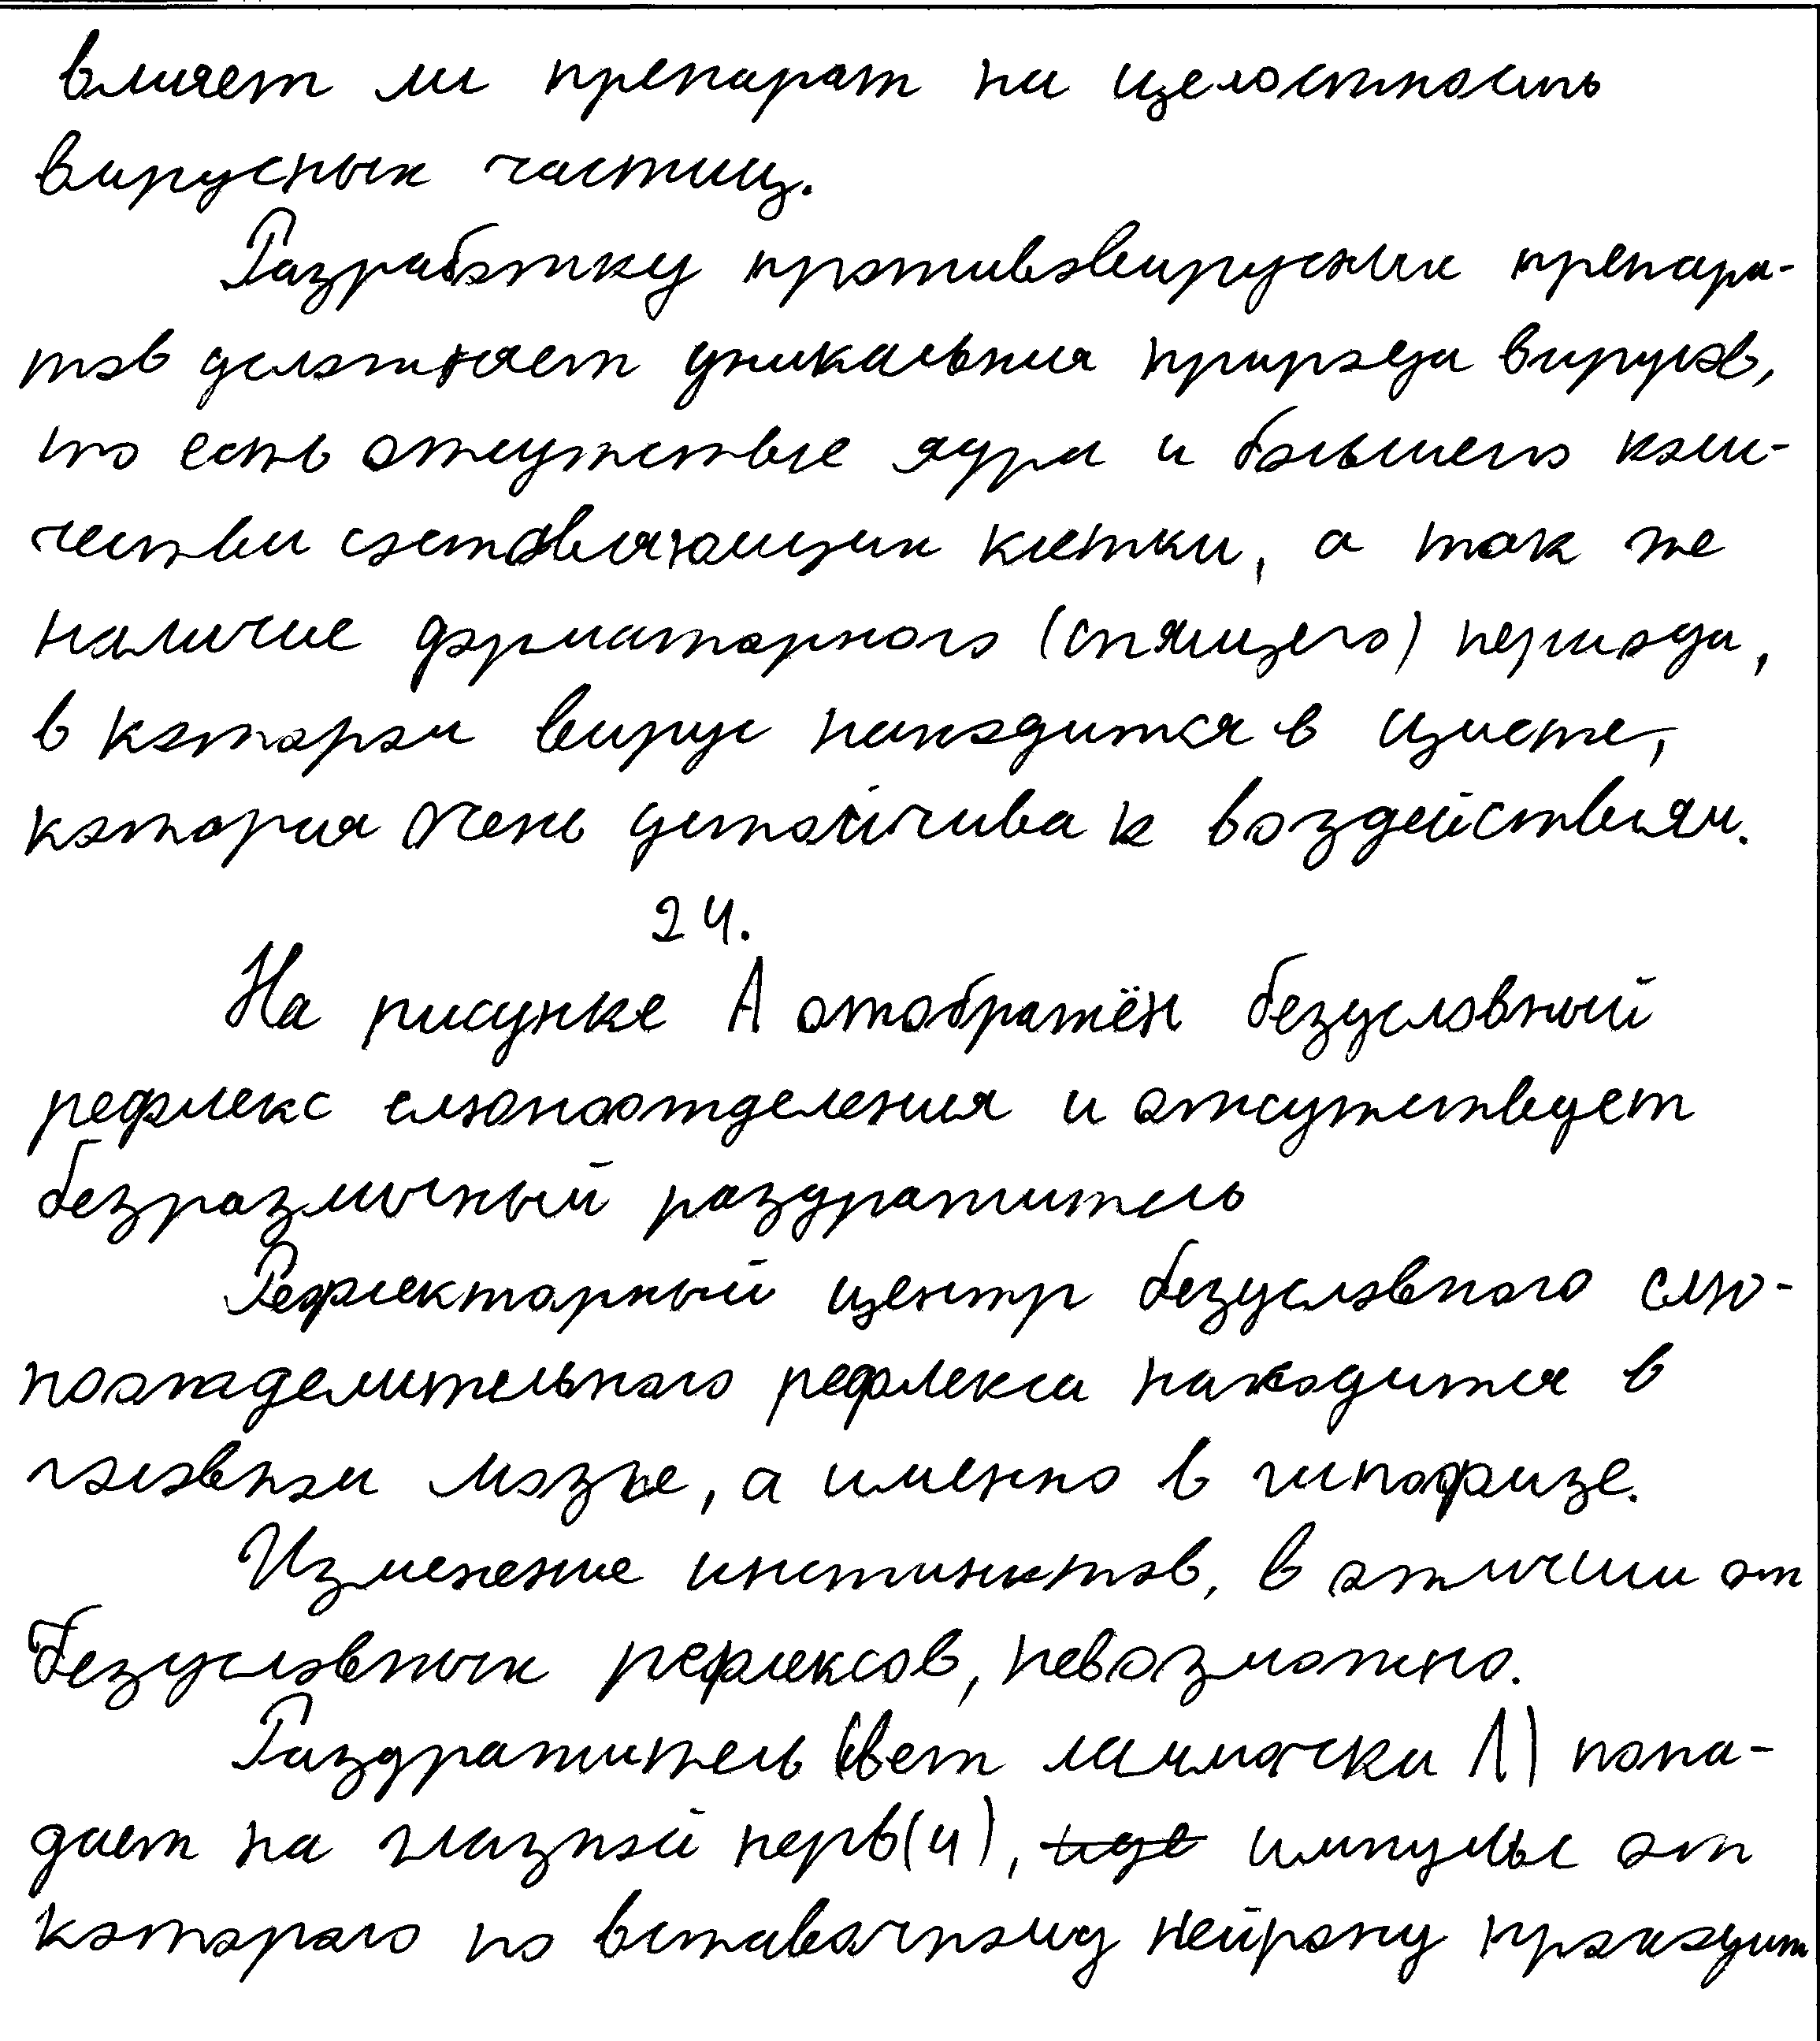 влияет ли препарат на целостность
вирусных частиц.
Разработку противовирусных препара-
тов усложняет уникальная природа вирусов,
то есть отсутствие ядра и большего коли-
чества составляющих клетки, а так же
наличие дорматорного (спящего) периода,
в котором вирус находится в цисте,
которая очень устойчива к воздействиям.
24.
На рисунке А отображён безусловный
рефлекс слюноотделения и отсутствует
безразличный раздражитель
Рефлекторный центр безусловного слю-
ноотделительного рефлекса находится в
головном мозге, а именно в гипофизе.
Изменение инстинктов, в отличии от
безусловных рефлексов, невозможно.
Раздражитель (свет лампочки Л) попа-
дает на глазной нерв(4), импульс от
которого по вставочному нейрону проходит